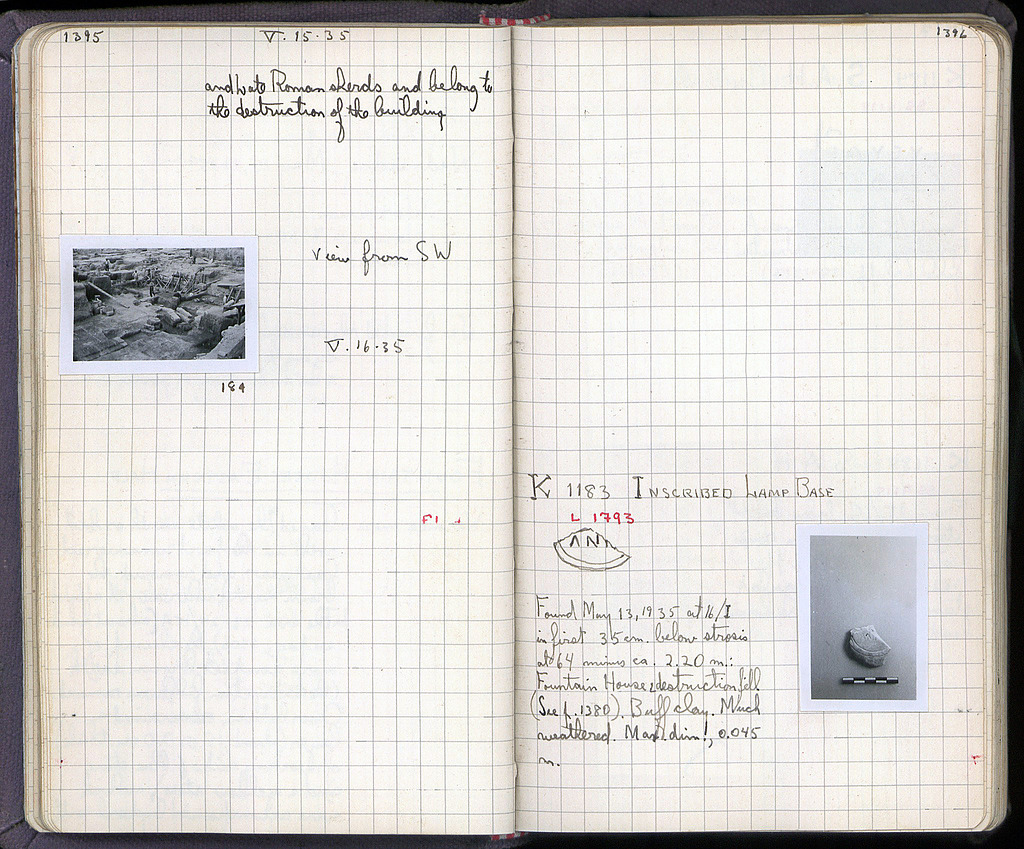 1395
V. 15.35
and Late Roman sherds and belong to
the destruction of the building
View from SW
V. 16.35
184
1396
K 1183 INSCRIBED LAMP BASE
L 1793
ΛΝ
Found May 13, 1935 at 16/I
in first 35 cm. below strosis
at 64 minus ca. 2.20 m.:
Fountain House, destruction fill
(See p. 1380). Buff clay. Much
weathered. Max. dim., 0.045
m.